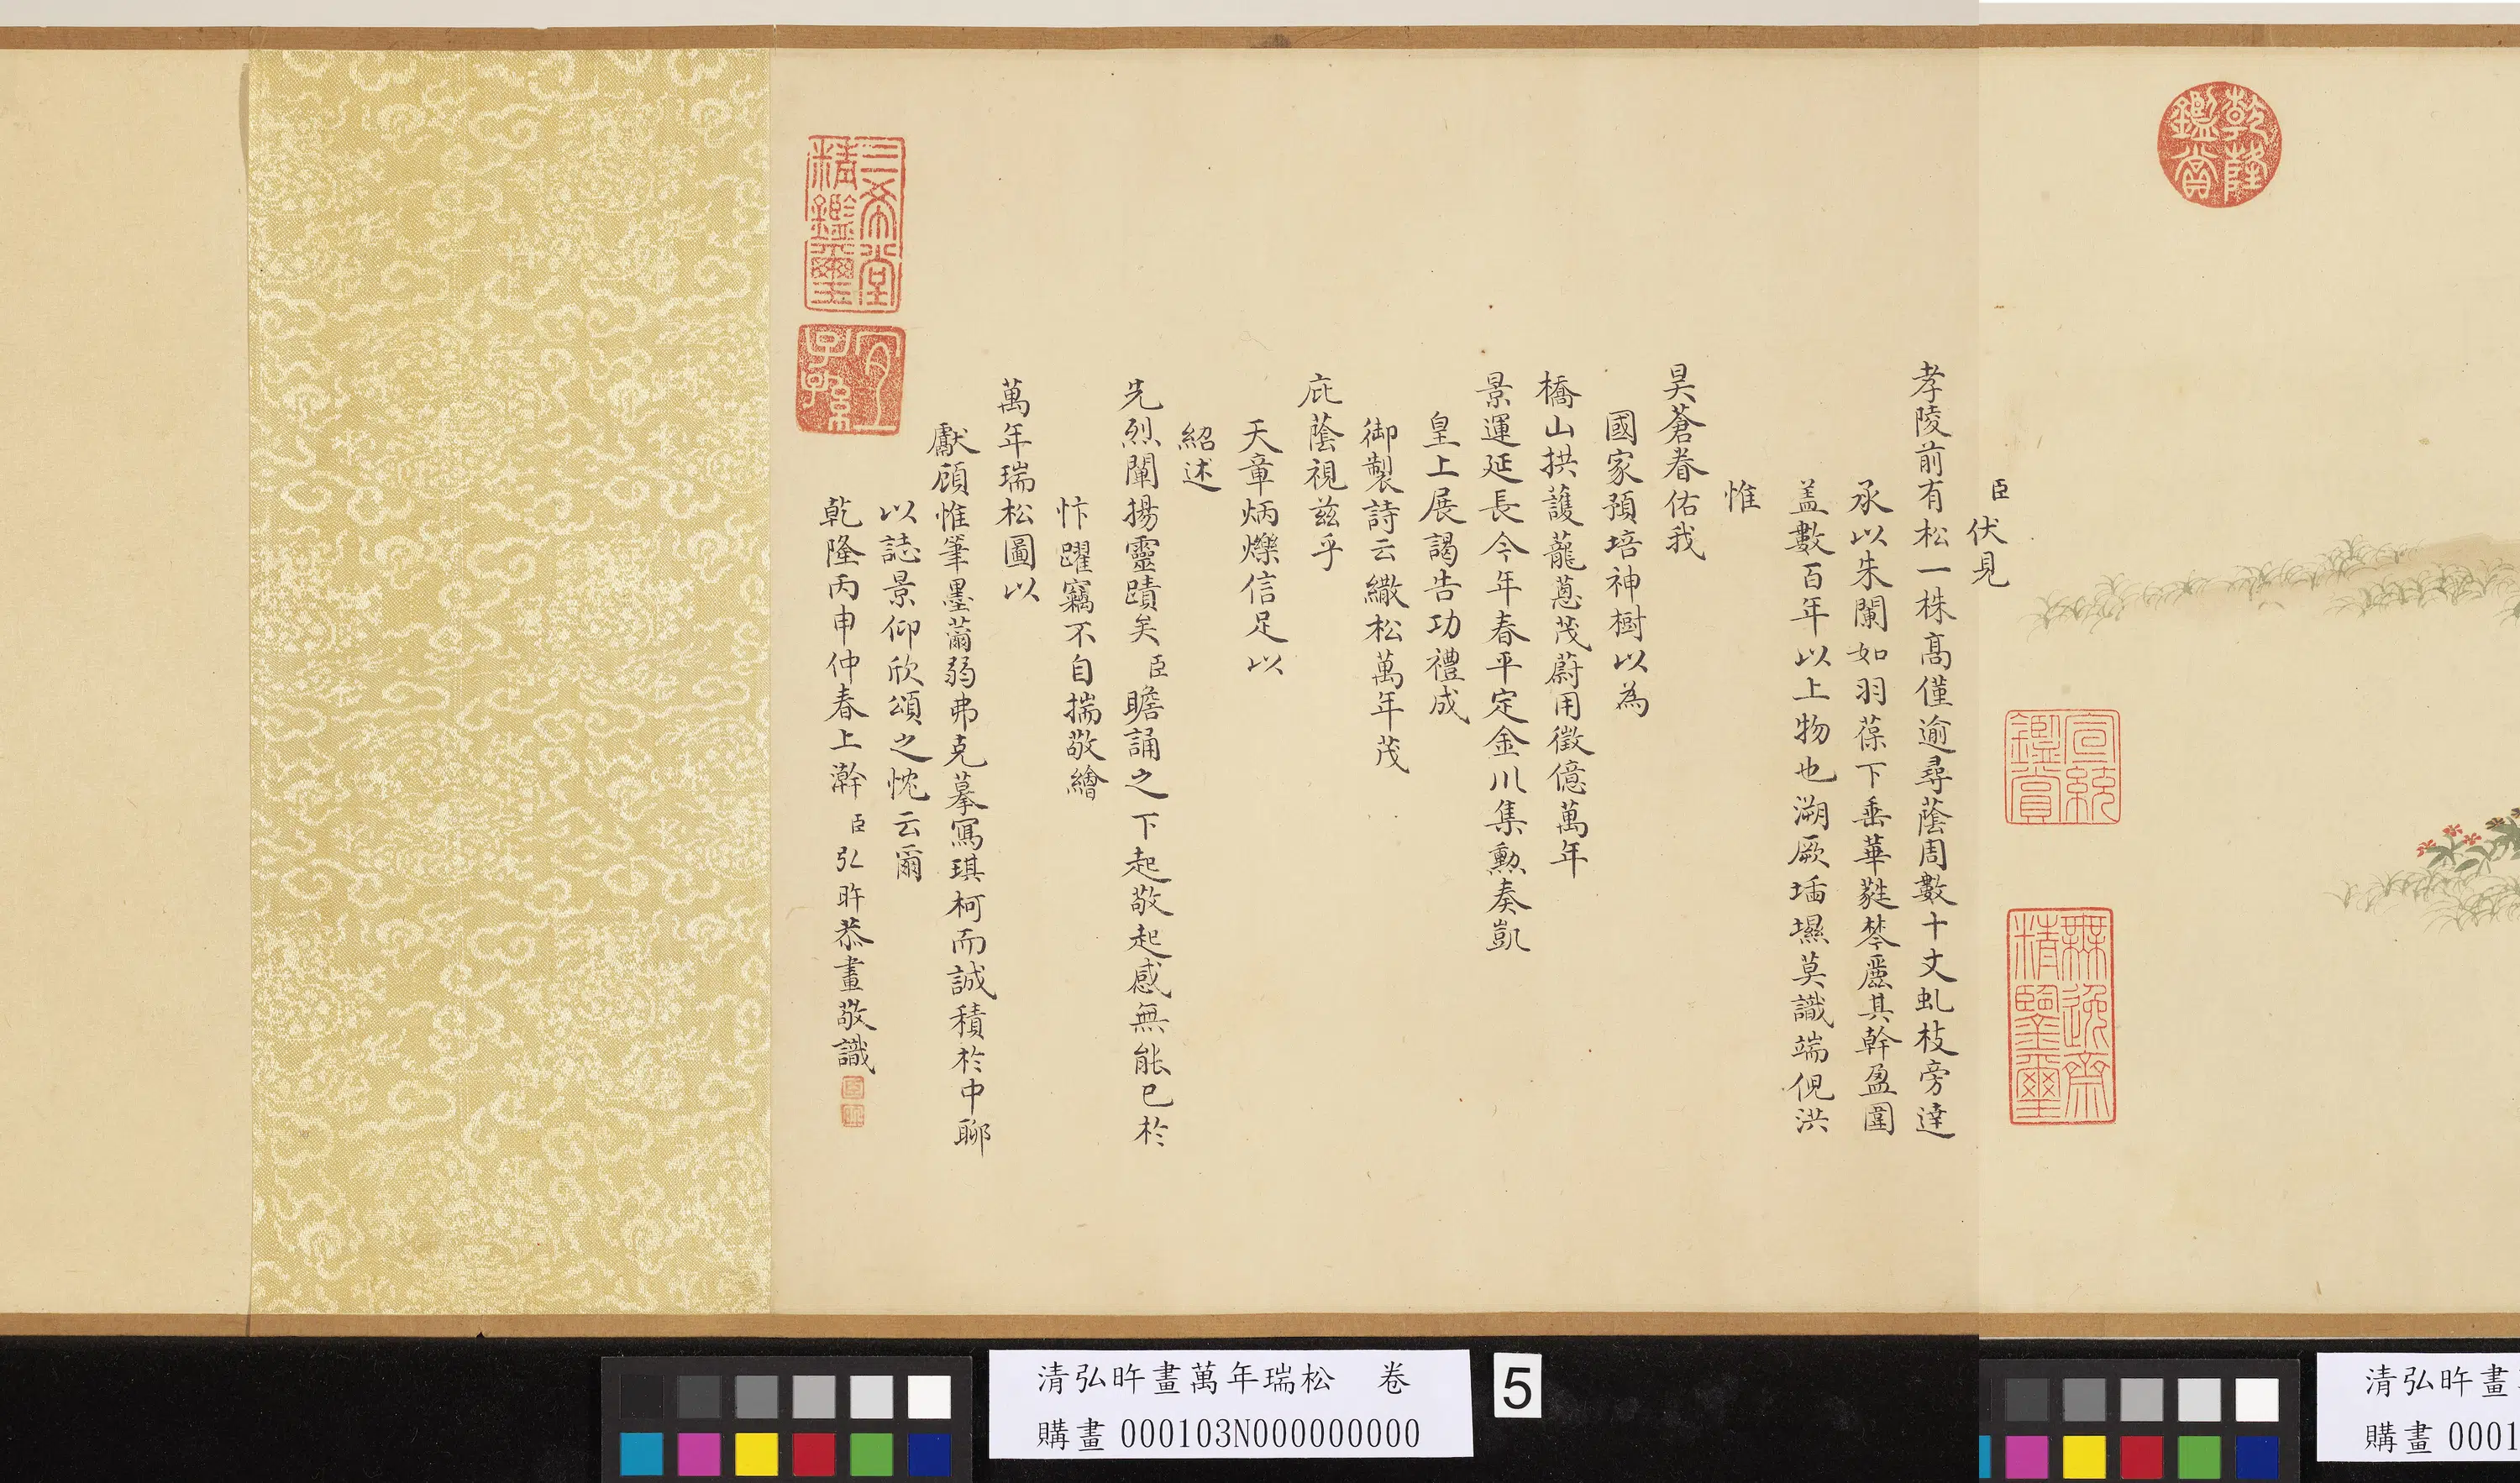 乾隆鑑賞
宣統鑑賞
無逸齋精鑒璽
臣伏見
孝陵前有松一株高僅逾尋蔭周數十丈虬枝旁達
承以朱闌如羽葆下垂華蕤棽麗其幹盈圍
盖數百年以上物也溯厥墦壖莫識端倪洪
惟
昊蒼眷佑我
國家預培神樹以為
橋山拱護蘢蔥茂蔚用徵億萬年
景運延長今年春平定金川集勲奏凱
皇上展謁告功禮成
御製詩云繖松萬年茂
庇蔭視兹乎
天章炳爍信足以
紹述
先烈闡揚靈蹟矣臣瞻誦之下起敬起感無能已於
忭躍竊不自揣敬繪
萬年瑞松圖以
獻顧惟筆墨薾弱弗克摹寫琪柯而誠積於中聊
以誌景仰欣頌之忱云爾
乾隆丙申仲春上澣臣弘旿恭畫敬識
三希堂精鑑璽
宜子孫
清弘旿畫萬年瑞松 卷
購畫000103N000000000
5
清弘旿畫
購畫0001